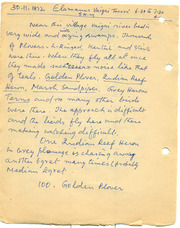 30-11-1972 Elamanur Vaigai Tank 6-30 to 7-30
Near this village Vaigai river bed is
very wide and drying swamps. Thousands
of Plovers - L. Ringed, Kentish and
here there. When they fly all at once
they made noises more like that
of Teals. Golden Plover, Indian Reef
Heron, Marsh Sandpiper. Grey Heron
Terns and so many other birds
were there. The approach is difficult
and the birds fly here and there
making watching difficult.
One Indian Reef Heron
in Grey plumage is chasing away
another Egret many times (probably
Median Egret)
100. Golden Plover